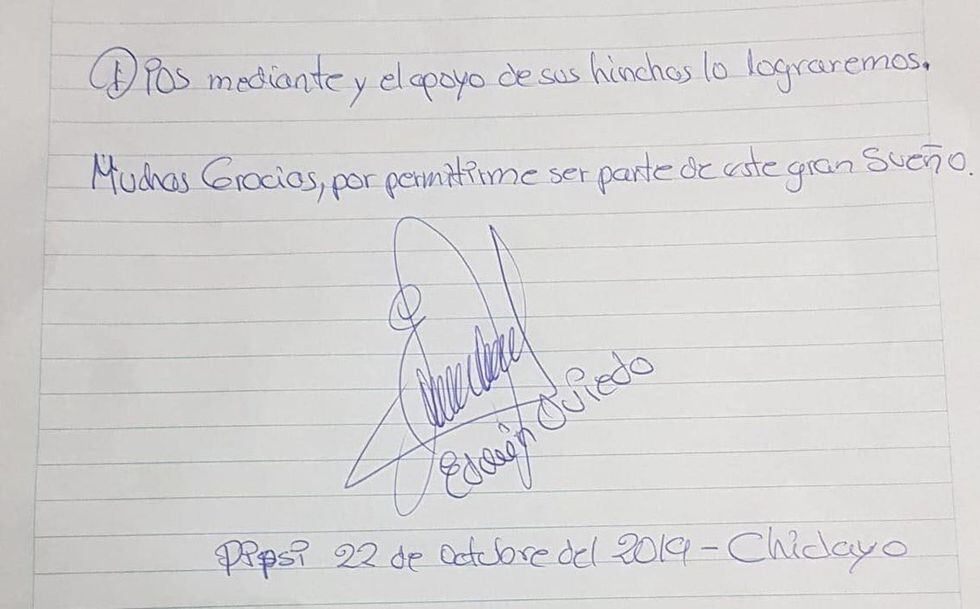 ① Dios mediante y el apoyo de sus hinchas lo lograremos.
Muchas Gracias, por permitirme ser parte de este gran Sueño.
Edwin Oviedo
Pipsi 22 de octubre del 2019 - Chiclayo